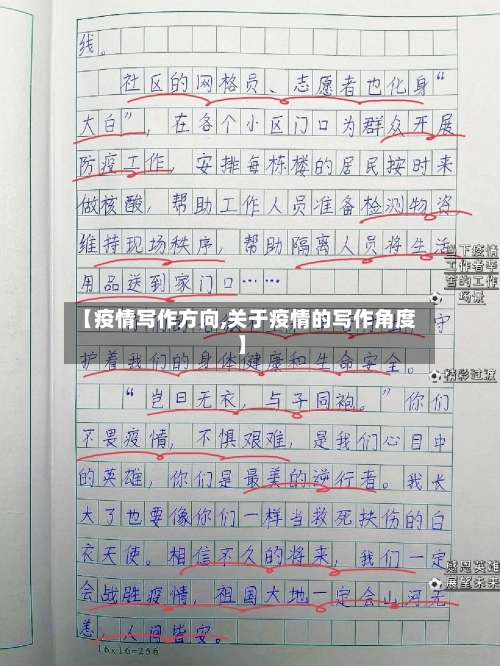 线。
社区的网格员、志愿者也化身“
大白”，在各个小区门口为群众开展
防疫工作，安排每栋楼的居民按时来
做核酸，帮助工作人员准备检测物资
维持现场秩序，帮助隔离人员将生活
用品送到家门口……
当下疫情
工作者辛
苦的工作
场景
【疫情写作方向,关于疫情的写作角度
】
守
护着我们的身体健康和生命安全。
精彩过渡
“岂曰无衣，与子同袍。”你们
不畏疫情，不惧艰难，是我们心目中
的英雄，你们是最美的逆行者。我长
大了也要像你们一样当救死扶伤的白
衣天使。相信不久的将来，我们一定
会战胜疫情，祖国大地一定会山河无
恙，人间皆安。
感恩英雄
展望未来
16×16=256